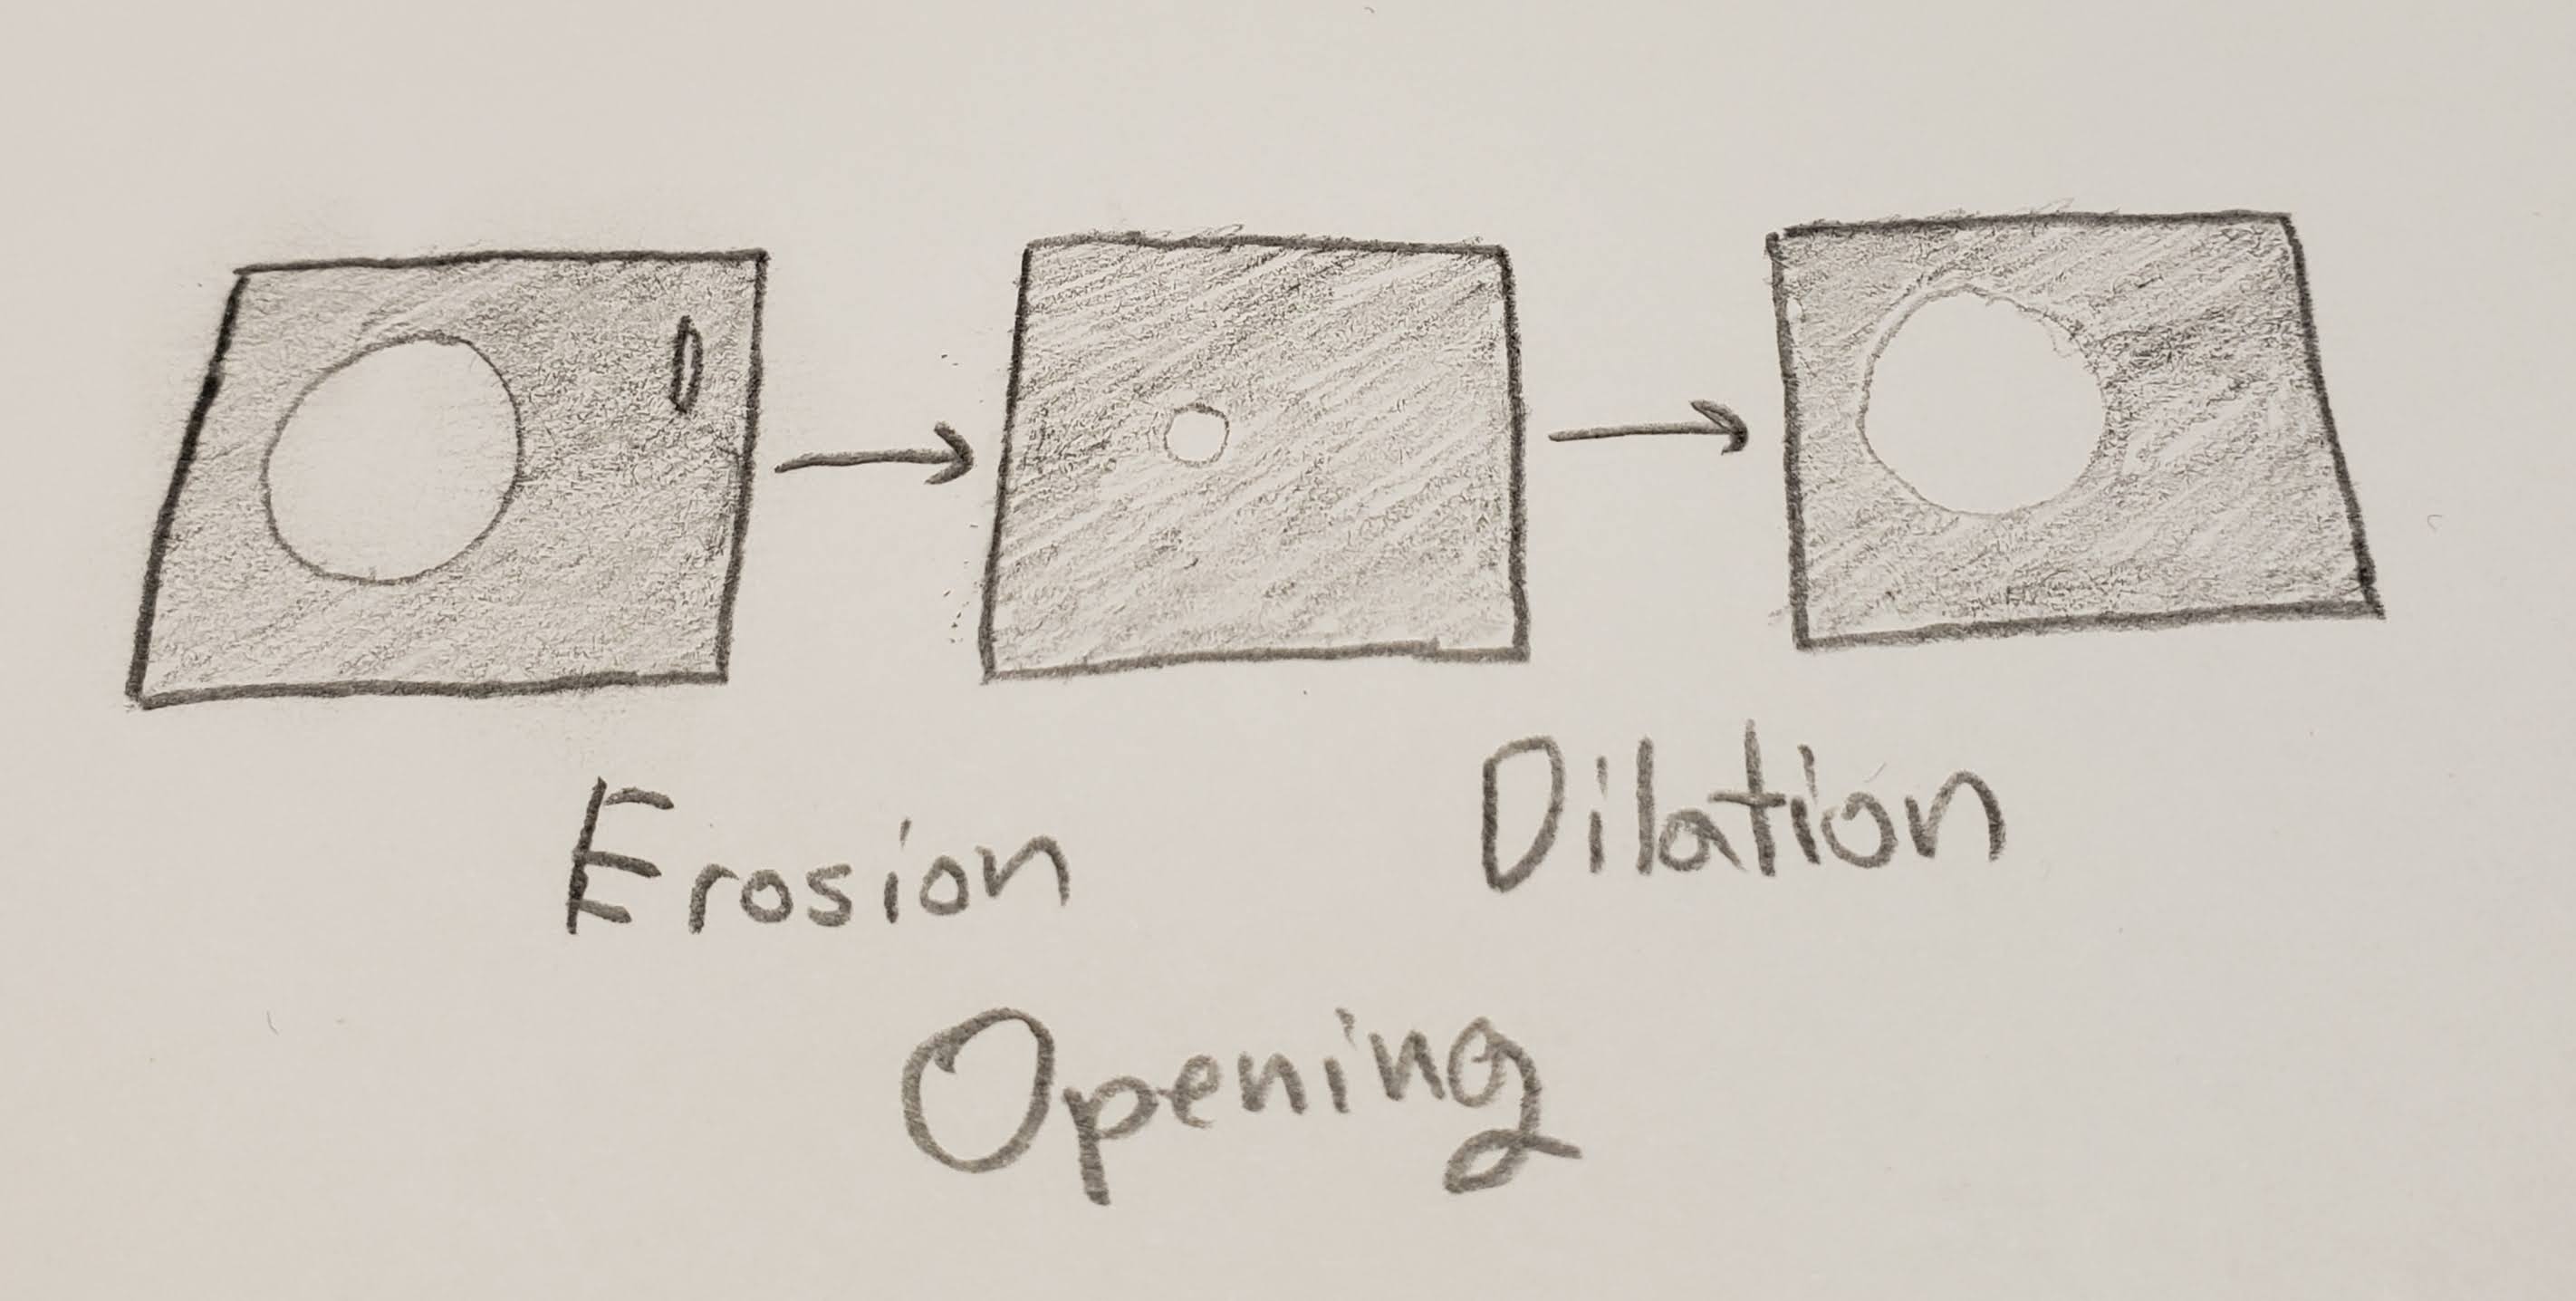 Erosion
Dilation
Opening